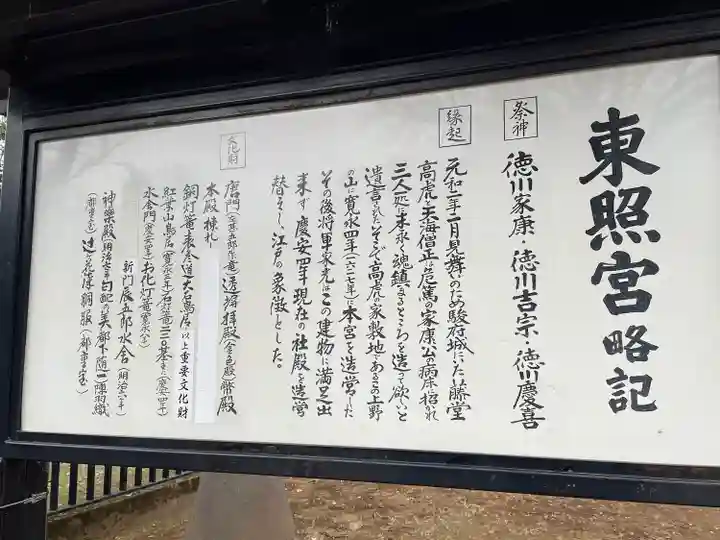 東照宮略記
祭神
徳川家康・徳川吉宗・徳川慶喜
縁起
元和二年二月見舞いのため駿府城にいた藤堂
高虎と天海僧正は危篤の家康公の病床に招かれ
三人一処に末永く魂鎮まるところを造って欲しいと
遺言された。そこで高虎の家敷地であるこの上野
の山に寛永四年(一六二七年)に本宮を造営した
その後将軍家光はこの建物に満足出
来ず慶安四年現在の社殿を造営
替えし、江戸の象徴とした。
文化財
唐門(左甚五郎作竜)透塀拝殿(金色殿)幣殿
本殿棟札
銅灯篭表参道大石鳥居以上重要文化財
紅葉山鳥居(寛永 年)石灯篭二 〇基(慶安四年)
水舎門(慶安四年)お化灯篭(寛永 年)
新門辰五郎水舎(明治 年)
神楽殿(明治 年)勾配の美都下随一陣羽織
(都重宝)辻ヶ花染胴服(都重宝)